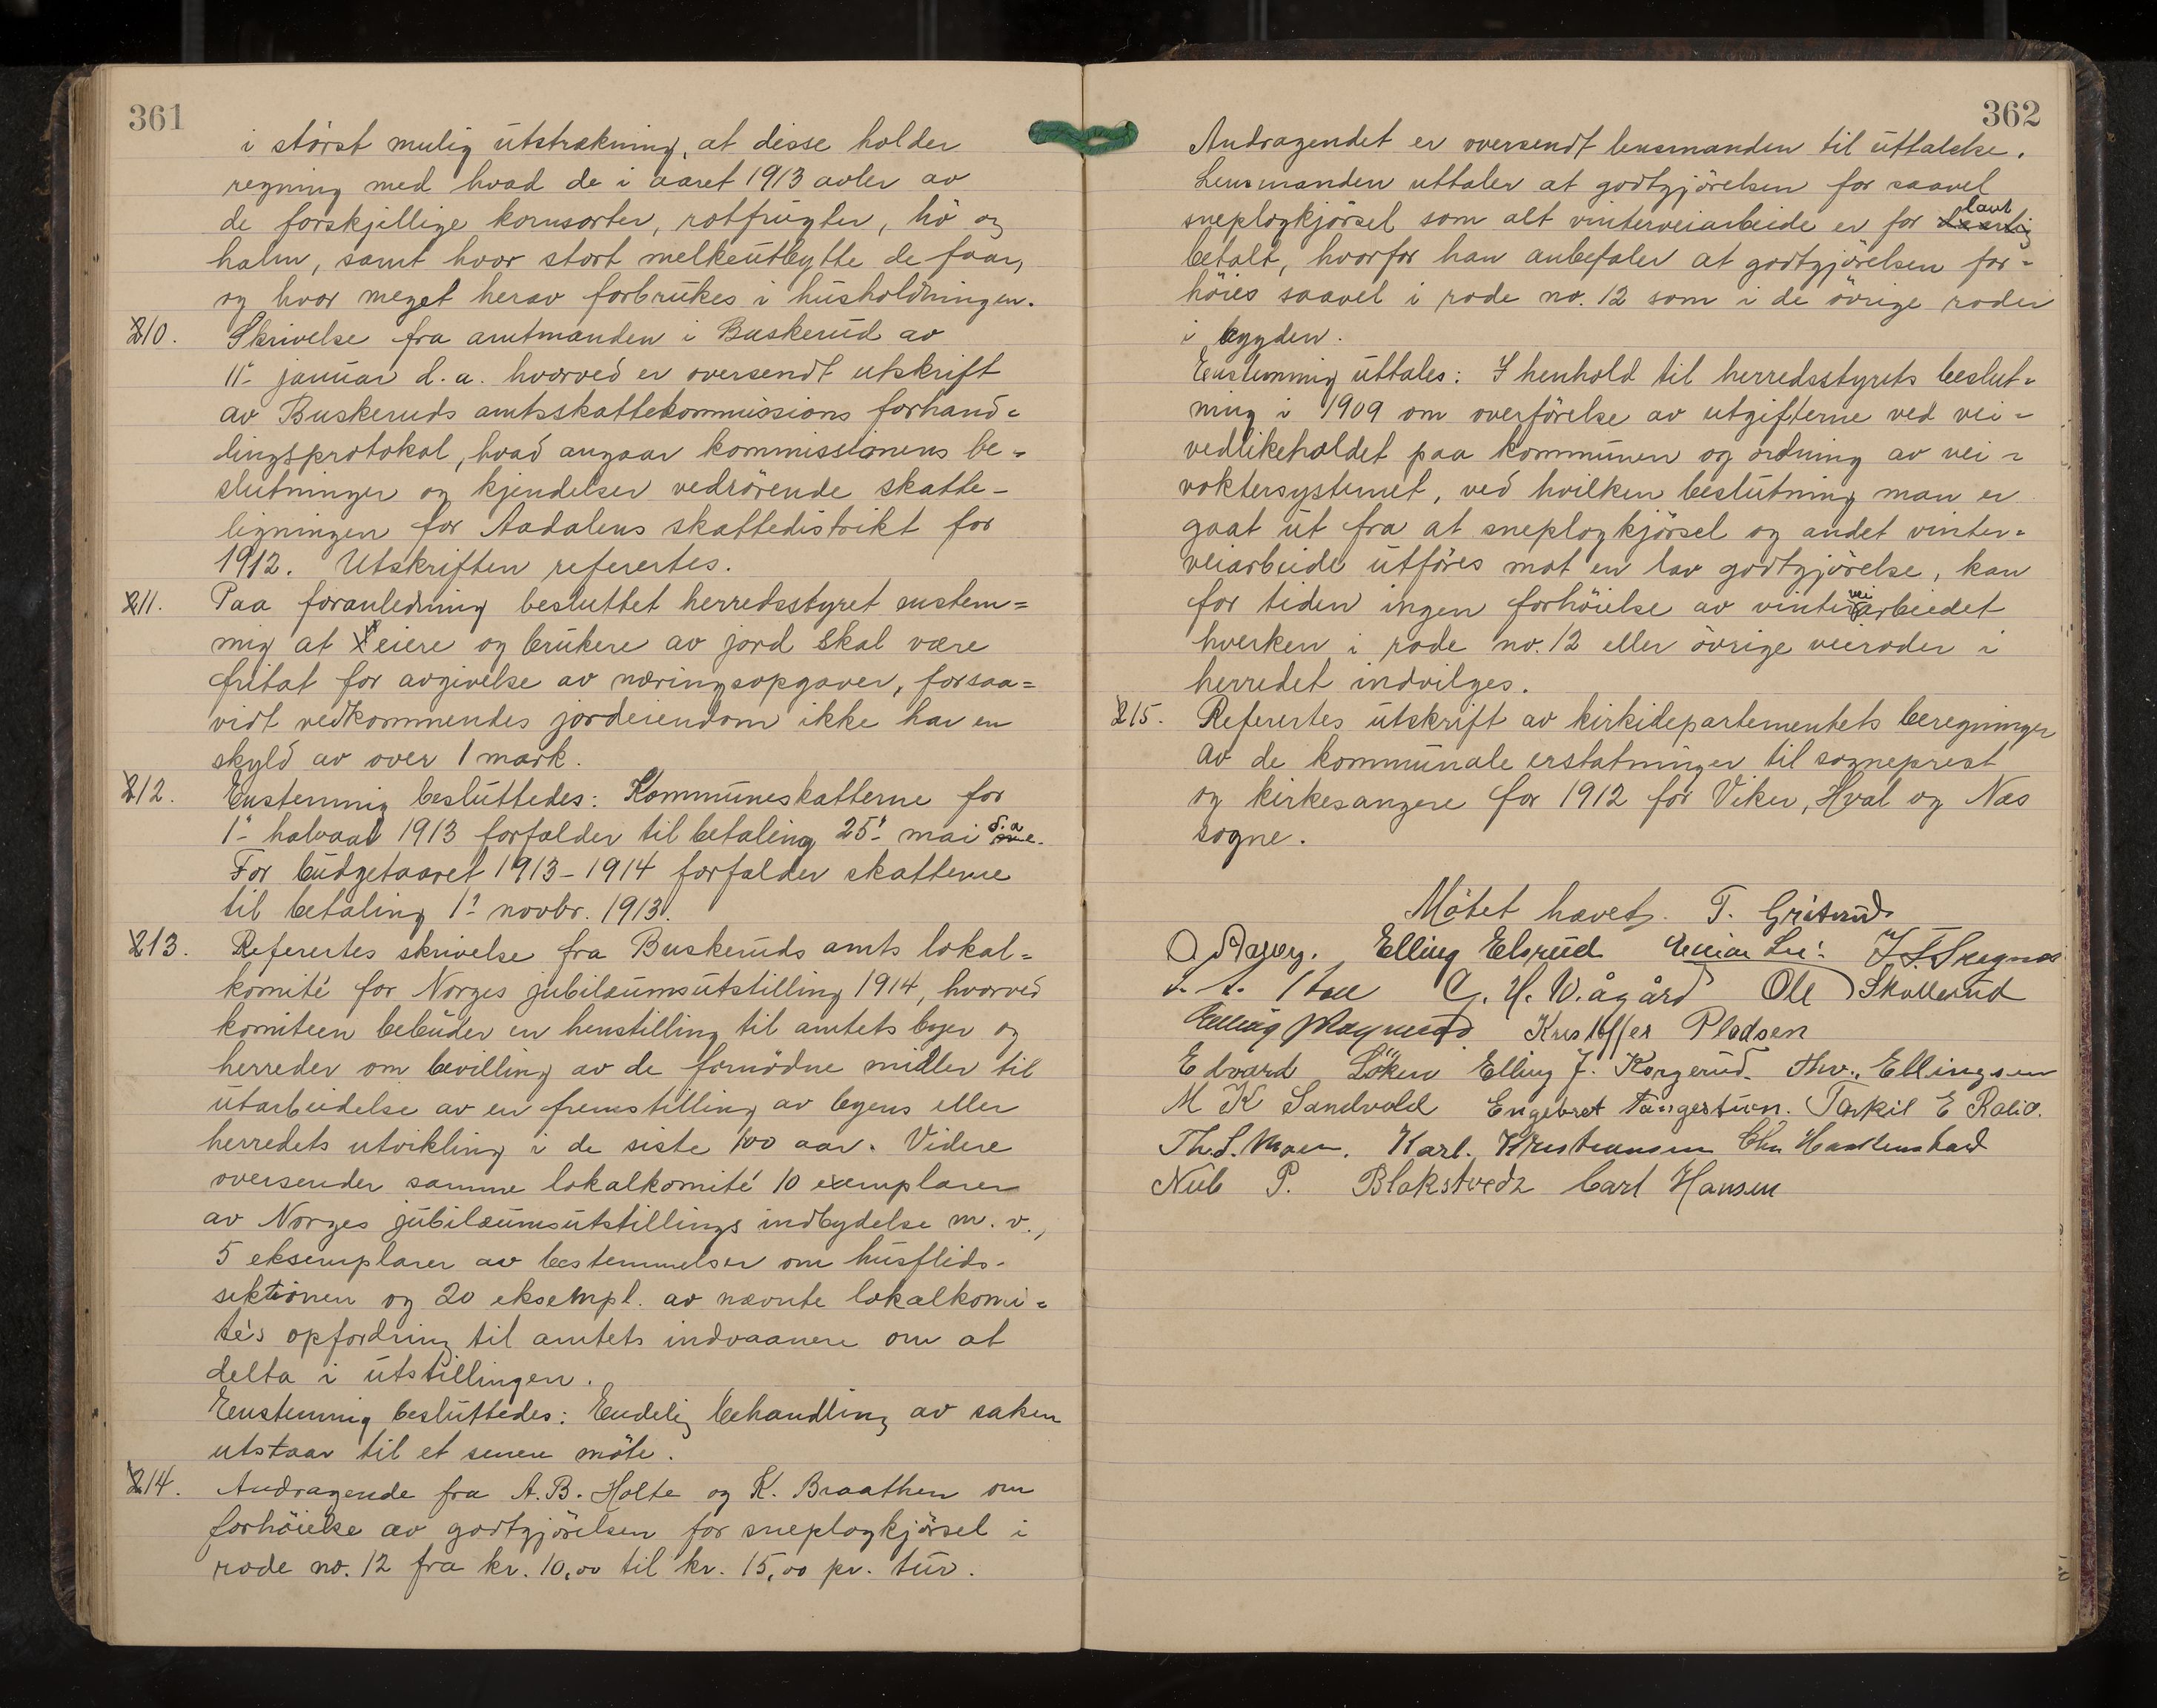 361
i störst mulig utstrækning, at disse holder
regning med hvad de i aaret 1913 avler av
de forskjellige kornsorter, rotfrugter, hö og
halm, samt hvor stort melkeutbytte de faar,
og hvor meget herav forbrukes i husholdningen.
210. Skrivelse fra amtmanden i Buskerud av
11- januar d.a. hvorved er oversendt utskrift
av Buskeruds amtsskattekommissions forhand=
lingsprotokol, hvad angaar kommissionens be=
slutninger og kjendelser vedrörende skatte-
ligningen for Aadalens skattedistrikt for
1912. Utskriften referertes.
211. Paa foranledning besluttet herredsstyret enstem=
mig at eiere og brukere av jord skal være
fritat for avgivelse av næringsopgaver, forsaa=
vidt vedkommendes jordeiendom ikke har en
skyld av over 1 mark.
212. Enstemmig besluttedes: Kommuneskatterne for
1- halvaar 1913 forfalder til betaling 25- mai d.a.
For budgetaaret 1913-1914 forfalder skatterne
til betaling 1- novbr. 1913.
213. Referertes skrivelse fra Buskeruds amts lokal=
komité for Norges jubilæumsutstilling 1914, hvorved
komiteen bebuder en henstilling til amtets byer og
herreder om bevilling av de fornödne midler til
utarbeidelse av en fremstilling av byens eller
herredets utvikling i de siste 100 aar. Videre
oversender samme lokalkomité 10 exemplarer
av Norges jubilæumsutstillings indbydelse m.v.,
5 eksemplarer av bestemmelser om husflids-
sektionen og 20 eksempl. av nævnte lokalkomi=
té's opfordring til amtets indvaanere om at
delta i utstillingen.
Enstemmig besluttedes: Endelig behandling av saken
utstaar til et senere möte.
214. Andragende fra A.B. Holte og K. Braathen om
forhöielse av godtgjörelsen for sneplogkjörsel i
rode no. 12 fra kr. 10,00 til kr. 15,00 pr. tur.
362
Andragendet er oversendt lensmanden til uttalelse.
Lensmanden uttaler at godtgjörelsen for saavel
sneplogkjörsel som alt vinterveiarbeide er for lavt
betalt, hvorfor han anbefaler at godtgjörelsen for=
höies saavel i rode no. 12 som i de övrige roder
i bygden.
Enstemmig uttales: I henhold til herredsstyrets beslut=
ning i 1909 om overförelse av utgifterne ved vei=
vedlikeholdet paa kommunen og ordning av vei=
voktersystemet, ved hvilken beslutning man er
gaat ut fra at sneplogkjörsel og andet vinter=
veiarbeide utföres mot en lav godtgjörelse, kan
for tiden ingen forhöielse av vinterveiarbeidet
hverken i rode no. 12 eller övrige veiroder i
herredet indvilges.
215. Referertes utskrift av kirkidepartementets beregninger
av de kommunale erstatninger til sogneprest
og kirkesangere for 1912 for Viker, Hval og Næs
sogne.
Mötet hævet. T. Gritsrud
Elling Elsrud
C. H. Wågård Ole Skollerud
Elling Kristoffer Pladsen
Edvard Löken Elling J. Korgerud. Thv. Ellingsen
M K Sandvold Engebret Torkil E
Th. S. Moen. Karl. Kristiansen
P. Blakstvedt Carl Hansen